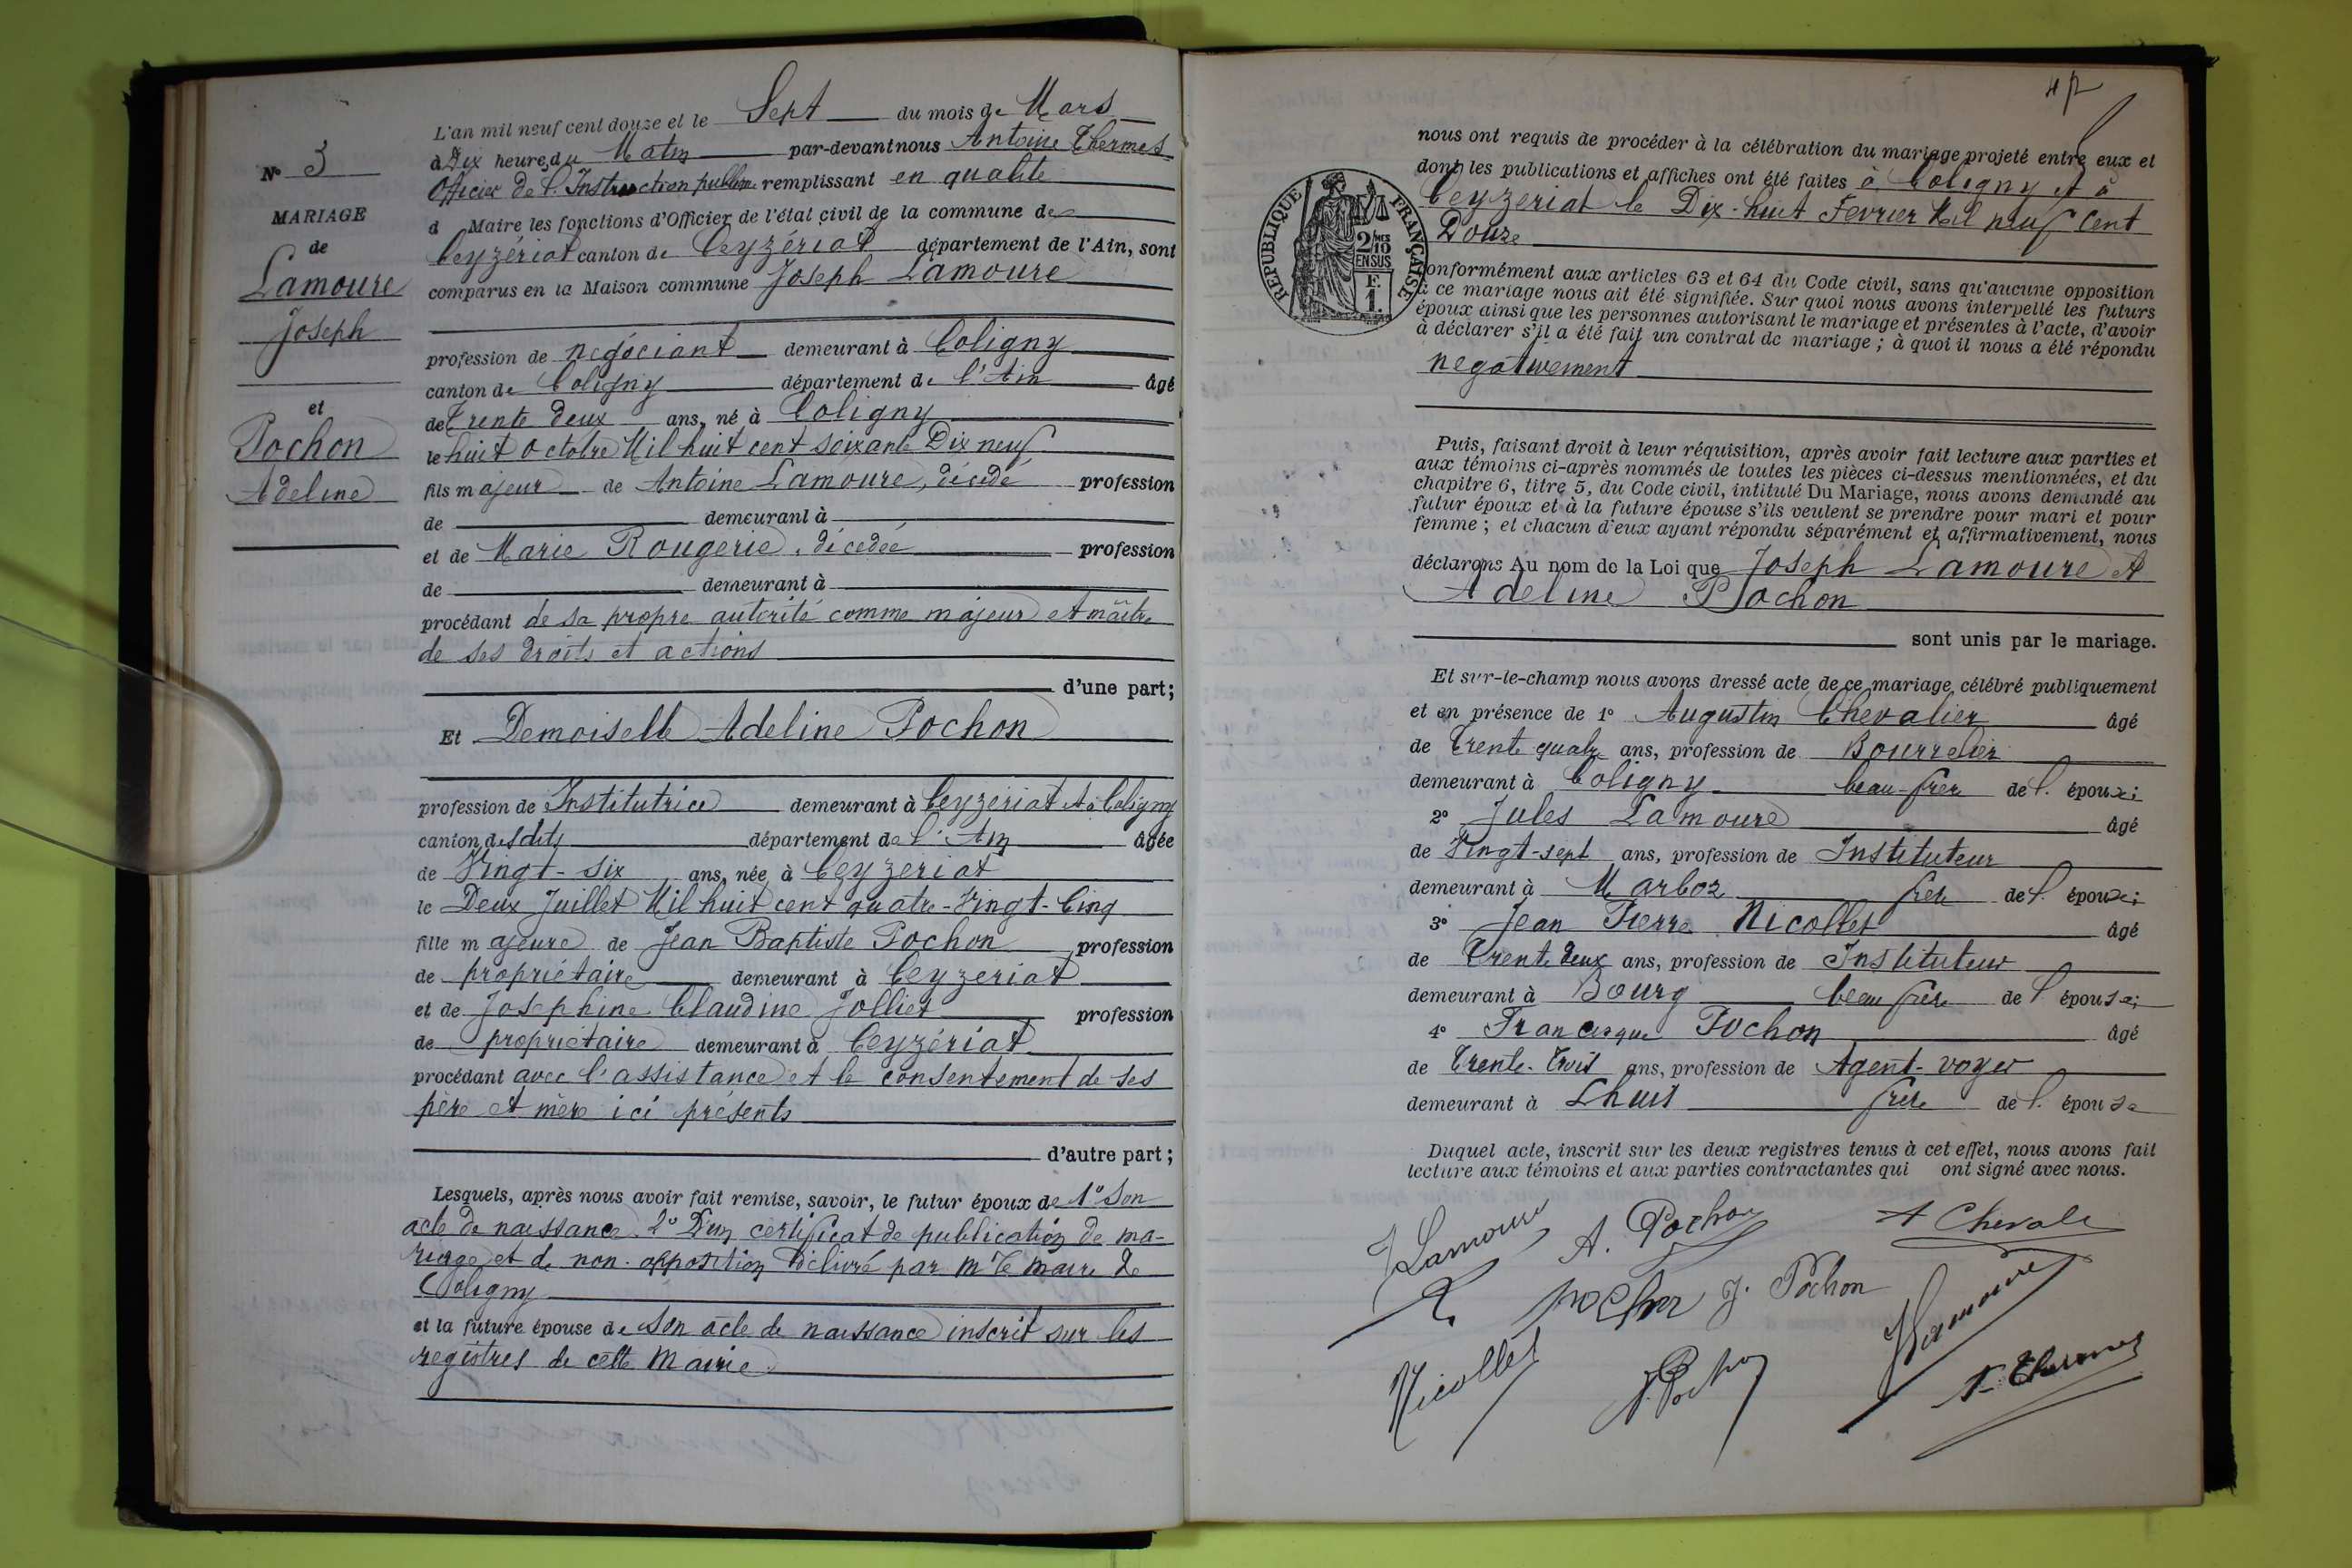 N° 3
MARIAGE
de
Lamoure
Joseph
et
Pochon
Adeline
L'an mil neuf cent douze et le Sept du mois de Mars
à Dix heures du Matin par-devant nous Antoine Thermes
Officier de l'Instruction publique remplissant en qualité
d Maire les fonctions d'Officier de l'état civil de la commune de
Ceyzériat canton de Ceyzériat département de l'Ain, sont
comparus en la Maison commune Joseph Lamoure
profession de négociant demeurant à Coligny
canton de Coligny département de l'Ain âgé
de Trente deux ans, né à Coligny
le huit Octobre Mil huit cent soixante Dix neuf
fils majeur de Antoine Lamoure, décédé profession
de demeurant à
et de Marie Rougerie, décédée profession
de demeurant à
procédant de sa propre autorité comme majeur et maître
de ses droits et actions
d'une part;
Et Demoiselle Adeline Pochon
profession de Institutrice demeurant à Ceyzériat et à Coligny
canton desdits département de l'Ain âgée
de Vingt-six ans, née à Ceyzeriat
le Deux Juillet Mil huit cent quatre-Vingt-Cinq
fille majeure de Jean Baptiste Pochon profession
de propriétaire demeurant à Ceyzeriat
et de Josephine Claudine Jolliet profession
de propriétaire demeurant à Ceyzériat
procédant avec l'assistance et le consentement de ses
père et mère ici présents
d'autre part;
Lesquels, après nous avoir fait remise, savoir, le futur époux de 1° Son
acte de naissance. 2° D'un certificat de publication de ma-
riage et de non-opposition délivré par Mr le maire de
Coligny
et la future épouse de son acte de naissance inscrit sur les
registres de cette Mairie.
nous ont requis de procéder à la célébration du mariage projeté entre eux et
dont les publications et affiches ont été faites à Coligny et à
Ceyzeriat le Dix-huit Fevrier Mil neuf Cent
Douze
REPUBLIQUE FRANÇAISE
2/10 MES
EN SUS
F.
1.
conformément aux articles 63 et 64 du Code civil, sans qu'aucune opposition
à ce mariage nous ait été signifiée. Sur quoi nous avons interpellé les futurs
époux ainsi que les personnes autorisant le mariage et présentes à l'acte, d'avoir
à déclarer s'il a été fait un contrat de mariage; à quoi il nous a été répondu
negativement
Puis, faisant droit à leur réquisition, après avoir fait lecture aux parties et
aux témoins ci-après nommés de toutes les pièces ci-dessus mentionnées, et du
chapitre 6, titre 5, du Code civil, intitulé Du Mariage, nous avons demandé au
futur époux et à la future épouse s'ils veulent se prendre pour mari et pour
femme; et chacun d'eux ayant répondu séparément et affirmativement, nous
déclarons Au nom de la Loi que Joseph Lamoure et
Adeline Pochon
sont unis par le mariage.
Et sur-le-champ nous avons dressé acte de ce mariage, célébré publiquement
et en présence de 1° Augustin Chevalier âgé
de Trente quatre ans, profession de Bourrelier
demeurant à Coligny beau-frère de l'époux;
2° Jules Lamoure âgé
de Vingt-sept ans, profession de Instituteur
demeurant à Marboz frère de l'époux;
3° Jean Pierre Nicollet âgé
de Trente deux ans, profession de Instituteur
demeurant à Bourg beau frère de l'épouse;
4° Francisque Pochon âgé
de Trente-Trois ans, profession de Agent-voyer
demeurant à Lhuis frère de l'épouse
Duquel acte, inscrit sur les deux registres tenus à cet effet, nous avons fait
lecture aux témoins et aux parties contractantes qui ont signé avec nous.
J Lamoure A. Pochon A Chevalier
Pochon J. Pochon Lamoure
Nicollet F. Pochon A. Thermes